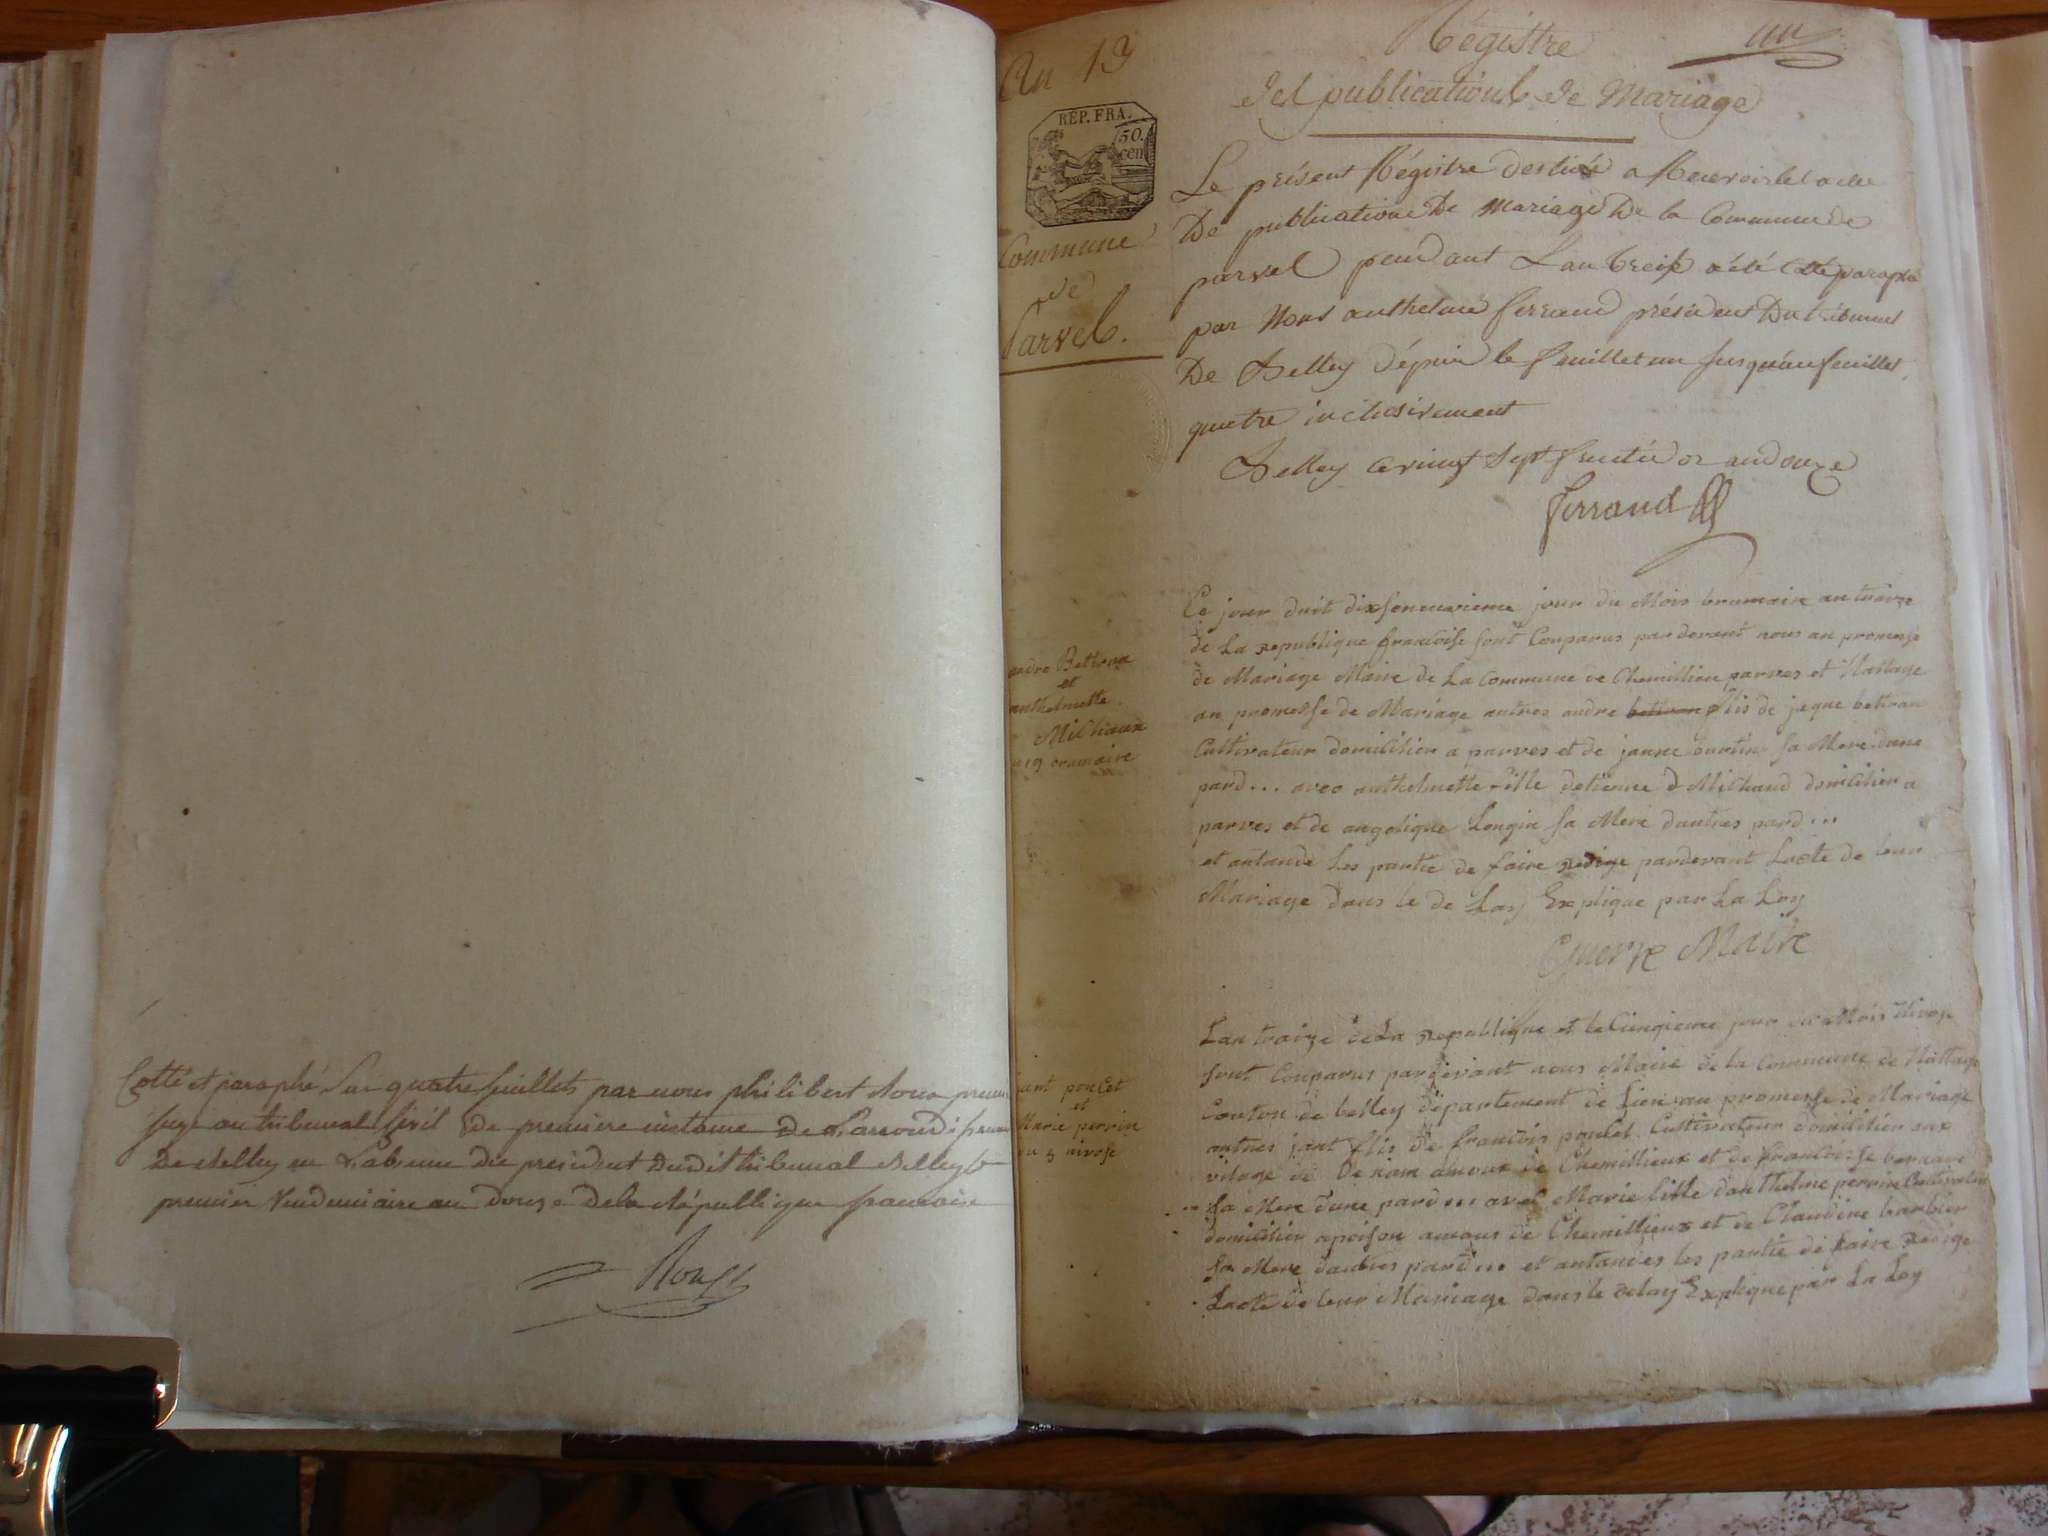 Cotté et paraphé Sur quatre feuillets par nous philibert Roux premier
juge au tribunal Civil de premiere instance de Larrondissement
De Belley en Labsence du president dudit tribunal Belley le
premier Vendemiaire an douze De la République francaise
Roux
An 13
REP. FRA.
50. cen
Commune
de
Parves.
Régistre
un
des publications de Mariage
Le présent Régistre destiné a Recevoir les actes
De publications De Mariage De la Commune de
parves pendant L'an treize a été Cotté paraphé
par Nous anthelme ferrand président Du tribunal
De Belley Dépuis le feuillet un Jusqu'au feuillet
quatre inclusivement
Belley ce vingt Sept fructidor an douze
ferrand
andre Bettran
et
anthelmette
Michaux
19 brumaire
Ce jour duit dixseneuvieme jour du Mois brumaire an traize
de La republique francoise sont Conparus pardevent nous an promesse
de Mariage Maire de La commune de Chemillieu parves et Nattage
an promesse de Mariage autres andre bettran filis de jeque bettran
Cultivateur domicilier a parves et de janne burtin sa Mere dune
pard... avec anthelmette fille detienne d Michaud domicilier a
parves et de angelique Longin sa Mere dautres pard...
et antande Les partie de faire redige pardevant Lacte de leur
Mariage dans le de Lay Explique par La Loy
Maire
jant poncet
et
Marie perrin
du 5 nivose
Lan traize de La republique et le Cinqieme jour du Mois Nivose
sont Conparus pardevant nous Maire de la Commune de Nattage
Conton de belley département de Lien an promesse de Mariage
antres jant filis de francois poncet Cultivateur domicilier aux
vilage de amous de Chemillieux et de francoisse bernard
sa Mere dune pard... avec Marie fille danthelme perrin Cultivateur
domicilier a poison amous de Chemillieux et de Claudine barbier
sa Mere dautres pard... et antandes les partie de faire redige
Lacte de leur Mariage dans le delay Explique par La Loy